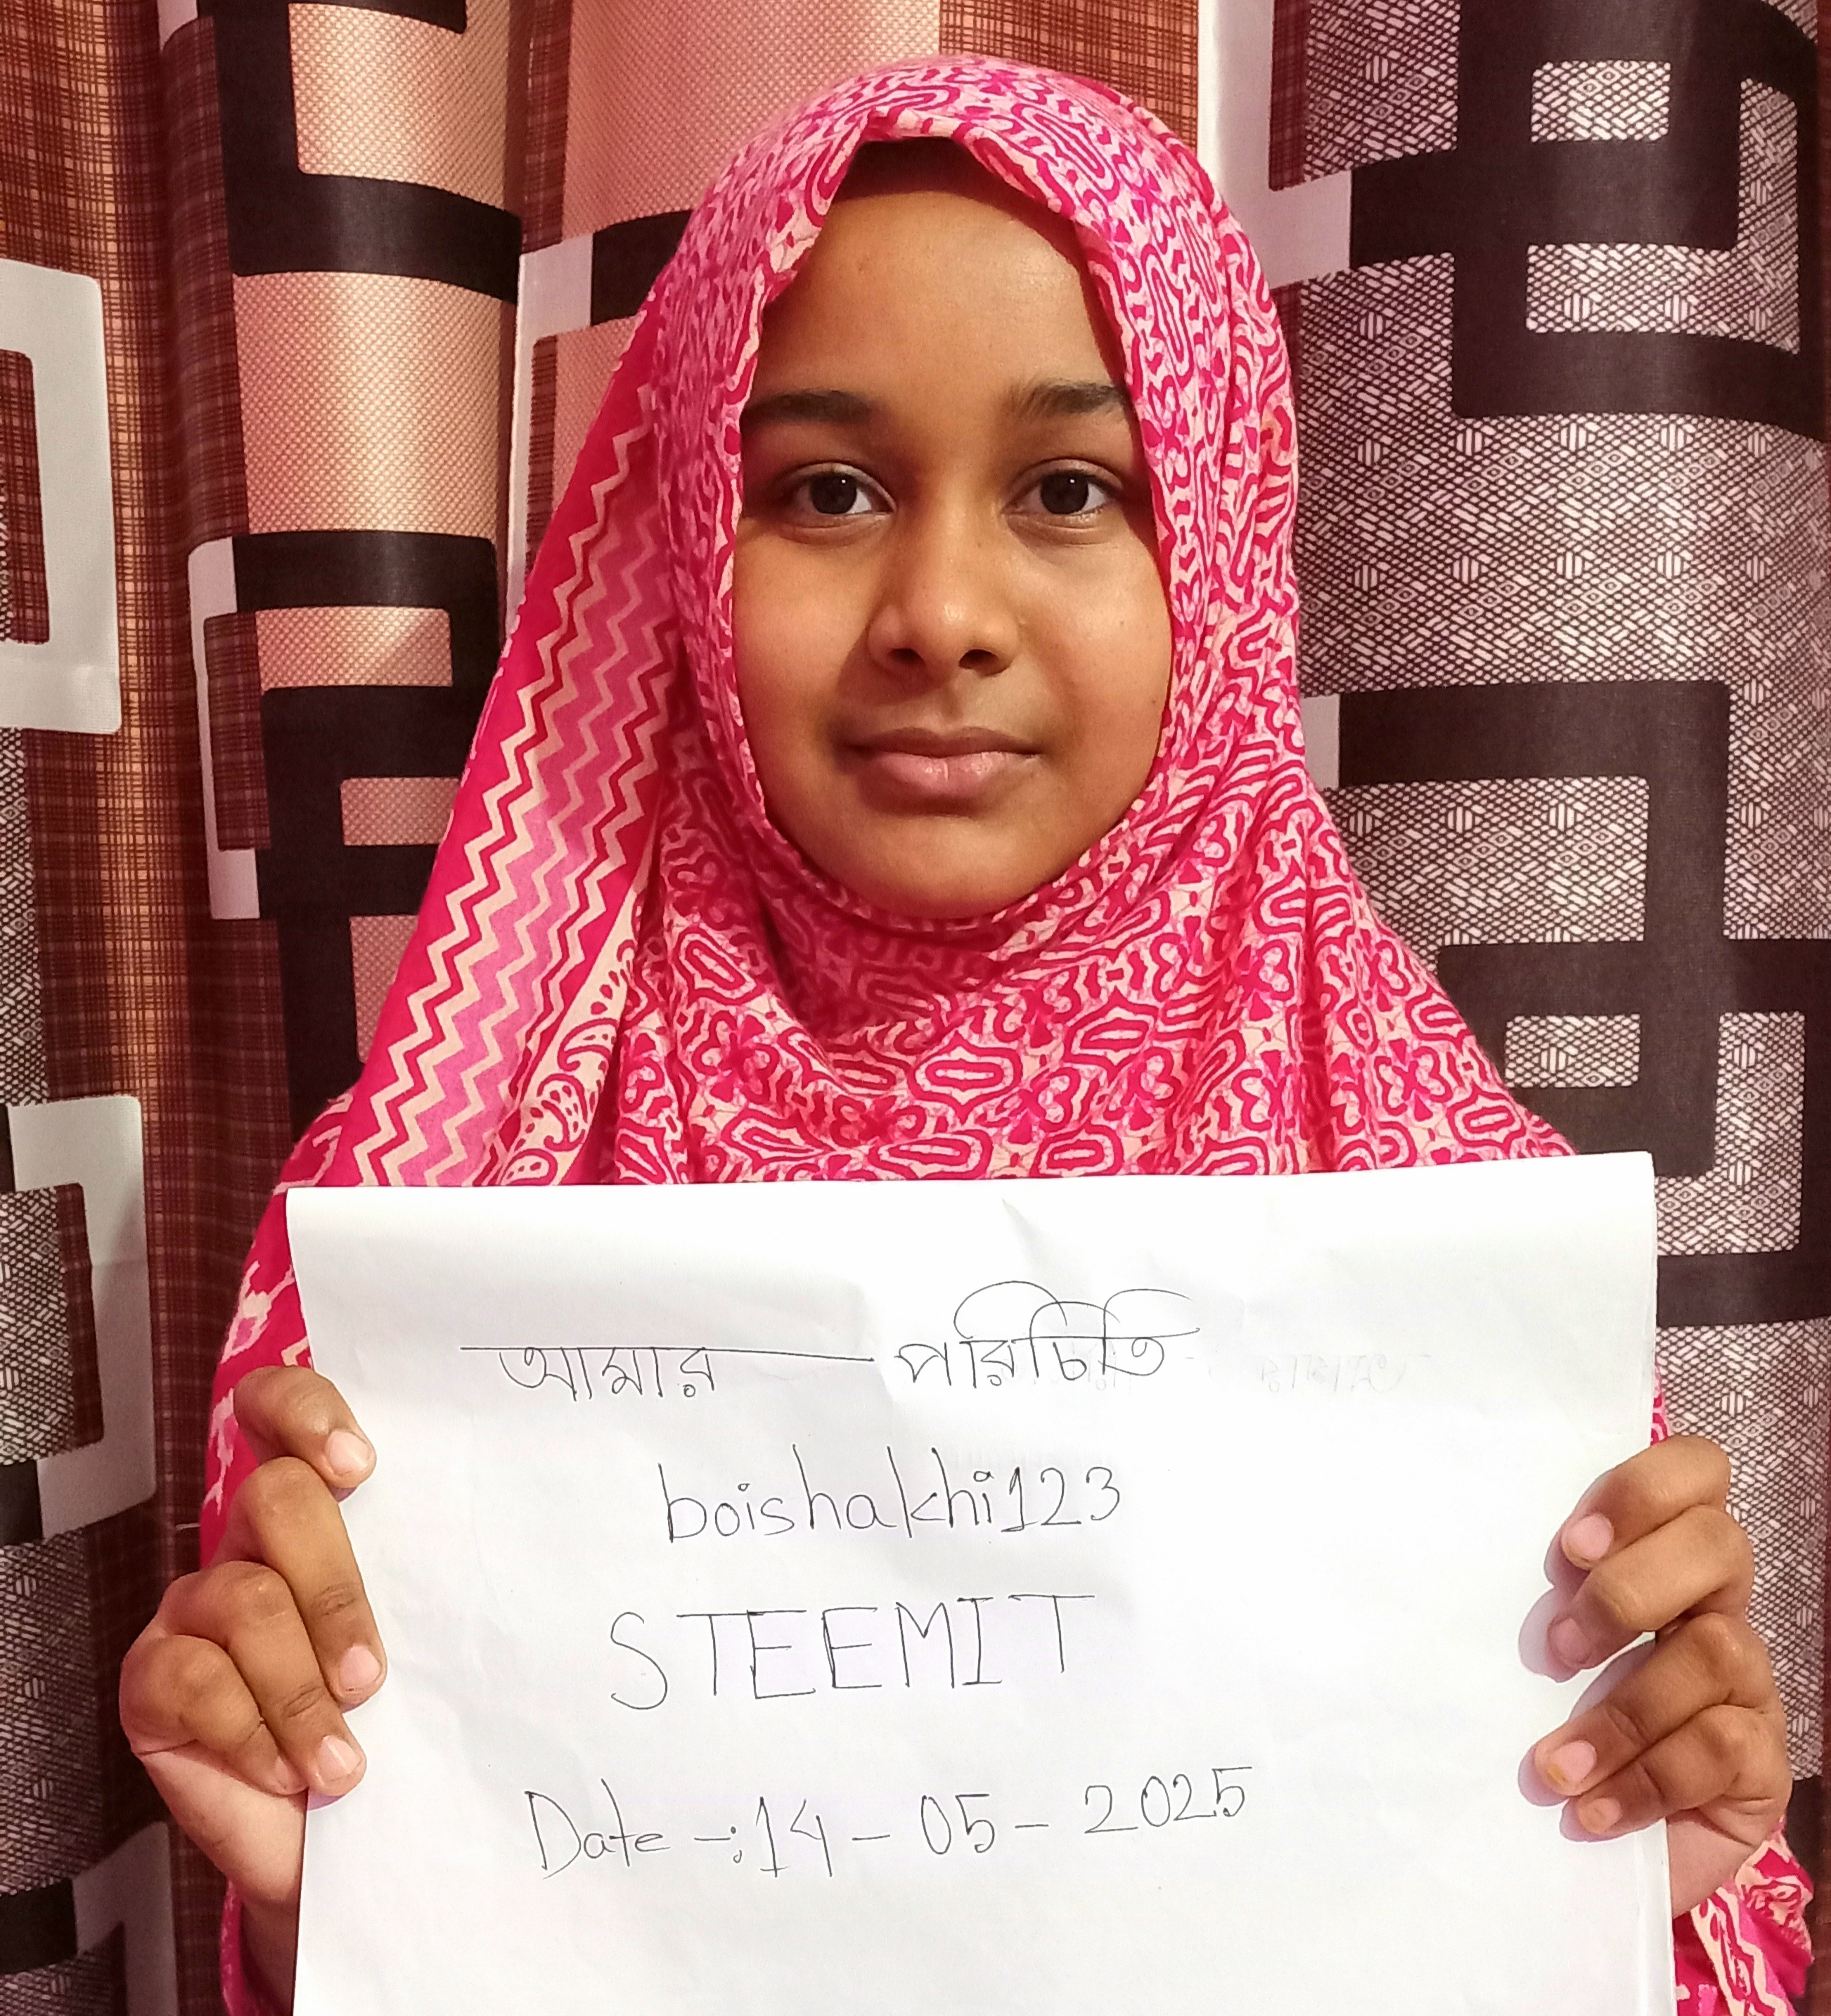 আমার পরিচিতি
boishakhi123
STEEMIT
Date -: 14 - 05 - 2025